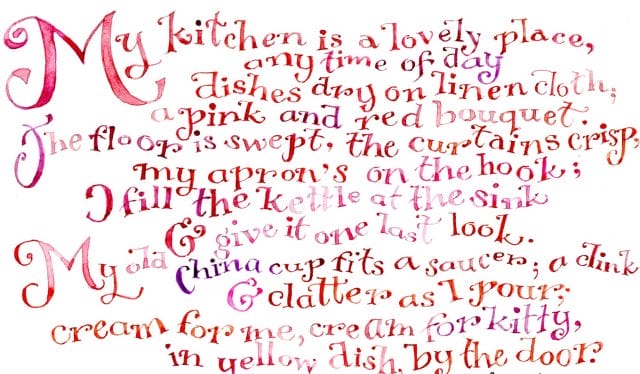 My kitchen is a lovely place,
any time of day
dishes dry on linen cloth;
a pink and red bouquet.
The floor is swept, the curtains crisp,
my apron's on the hook;
I fill the kettle at the sink
& give it one last look.
My old China cup fits a saucer; a clink
& clatter as I pour;
cream for me, cream for kitty,
in yellow dish, by the door.